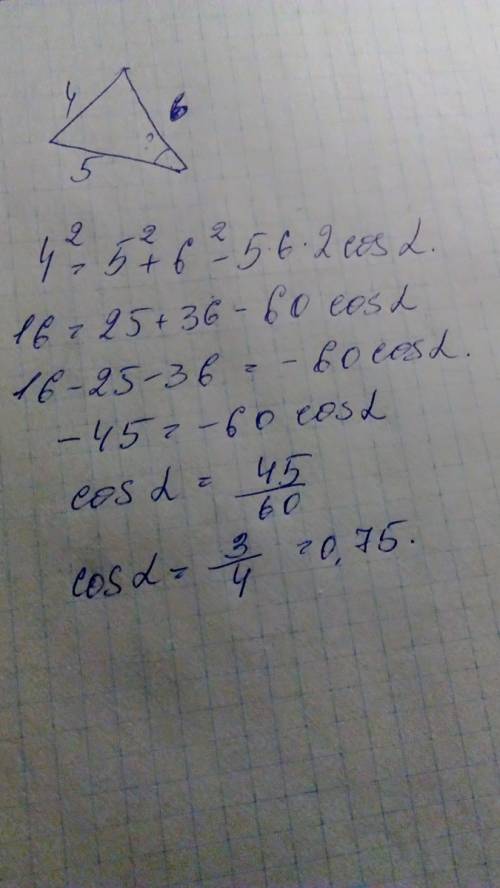 4
6
?
5
4² = 5² + 6² - 5·6·2 cos α.
16 = 25 + 36 - 60 cos α
16 - 25 - 36 = - 60 cos α.
- 45 = - 60 cos α
cos α = 45/60
cos α = 3/4 = 0,75.